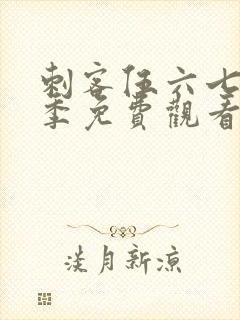 刺客伍六七
季免費觀看
淡月新凉